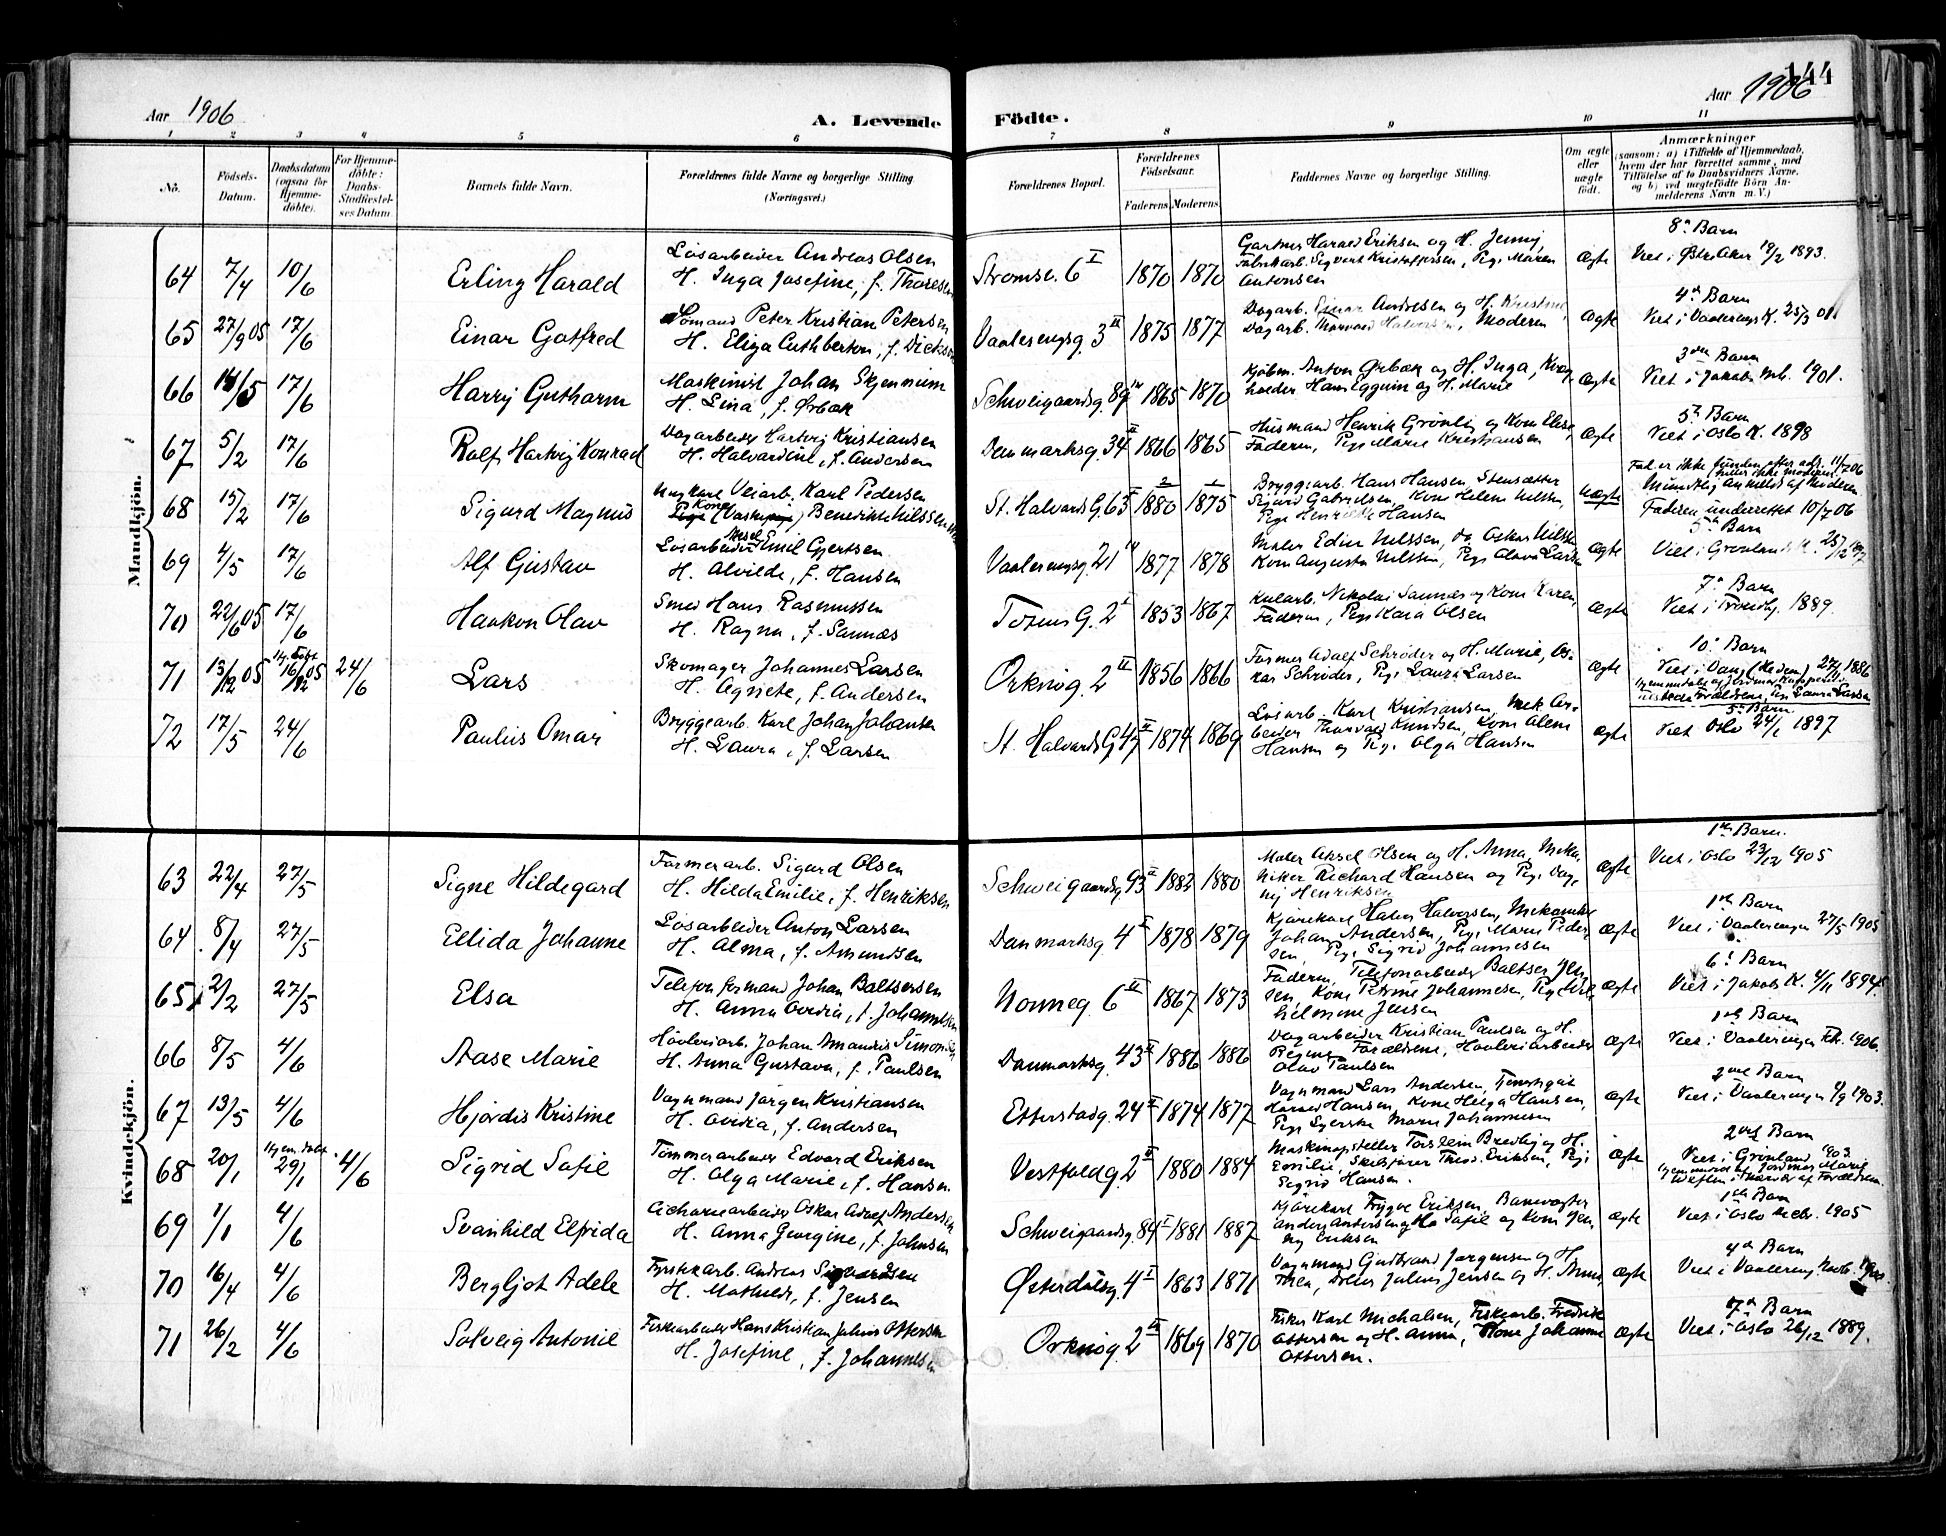 144
Aar 1906
A. Levende Födte.
Aar 1906
1 2 3 4 5 6 7 8 9 10 11
No.
Födsels-Datum.
Daabsdatum (ogsaa for Hjemme-döbte).
For Hjemme-döbte: Daabs-Stadfæstel-ses Datum
Barnets fulde Navn.
Forældrenes fulde Navne og borgerlige Stilling (Næringsvei.)
Forældrenes Bopæl.
Forældrenes Födselsaar.
Faderens. Moderens.
Faddernes Navne og borgerlige Stilling.
Om ægte eller uægte födt.
Anmærkninger
(saasom: a) i Tilfælde af Hjemmedaab, hvem der har forrettet samme, med Tilföielse af to Daabsvidners Navne, og b) ved uægtefödte Börn An-melderens Navn m. V.)
Mandkjön.
64 7/4 10/6 Erling Harald
Løsarbeider Andreas Olsen
H. Inga Josefine, f. Thoresen
Strømsv. 6 I 1870 1870
Gartner Harald Eriksen og H. Jenny,
Fabrikarb. Sigvart Kristoffersen, Pige Maren
Antonsen
Ægte
8de Barn
Viet i Østre Aker 19/2 1893.
65 27/9 05 17/6 Einar Gotfred
Sømand Peter Kristian Petersen
H. Eliza Cuthberton, f. Dickson
Vaalerengsg. 3 II 1875 1877
Dagarb. Einar Andresen og H. Kristine,
Dagarb. Thorvald Halvorsen, Moderen
Ægte
4de Barn
Viet i Vaalerengs K. 25/3 01
66 14/5 17/6 Harry Guthorm
Maskinist Johan Skjennum
H. Lina, f. Ørbæk
Schweigaardsg. 89 IV 1865 1870
Kjøbm. Anton Ørbæk og H. Inga,
Hans Eggum og H. Marie
Ægte
3die Barn
Viet i Jakobs Mh. 1901.
67 5/2 17/6 Rolf Hartvig Konrad
Dagarbeider Hartvig Kristiansen
H. Halvardine, f. Andersen
Danmarksg. 34 II 1866 1865
Husmand Henrik Grønli og Kone Elise,
Faderen, Pige Marie Kristiansen
Ægte
5te Barn
Viet i Oslo K. 1898
68 15/2 17/6 Sigurd Magnus
Ungkarl Veiarb. Karl Pedersen
Kone
Pige (Vaskepige) Benedikte Nilssen
St. Halvards G. 63 I 2 1880 1 1875
Bryggearb. Hans Hansen, Stensætter
Sigurd Gabrielsen, Kone Helene Nilssen,
Pige Henriette Hansen
Uægte
Fad. er ikke funden efter adr. 11/7 06
heller ikke Moderen.
Mundtlig Anmeld. af Moderen
Faderen underrettet 10/7 06
69 4/5 17/6 Alf Gustav
Løsarbeider Aksel Emil Gjertsen
H. Alvilde, f. Hansen
Vaalerengsg. 21 IV 1877 1878
Maler Edin Nilssen, do Oskar Nilssen
Kone Augusta Nilssen, Pige Olava Larsen
Ægte
5te Barn
Viet i Grønlands K. 25/12 1897
70 22/6 05 17/6 Haakon Olav
Smed Hans Rasmussen
H. Ragna, f. Sannæs
Tøiens G. 2 I 1853 1867
Kularb. Nikolai Sannæs og Kone Karen,
Faderen, Pige Kaia Olsen
Ægte
7de Barn
Viet i Trondhj. 1889.
71 13/12 05 Hj. døbt 16/12 05 24/6 Lars
Skomager Johannes Larsen
H. Agnete, f. Andersen
Orknøg. 2 II 1856 1866
Former Adolf Schrøder og H. Marie, Os-
kar Schrøder, Pige Laura Larsen
Ægte
10de Barn
Viet i Vang (Hedem) 27/1 1886
Hjemmedøbt af Jordmor
Forældrene, Pige Laura Larsen
72 17/5 24/6 Paulus Omar
Bryggearb. Karl Johan Johansen
H. Laura, f. Larsen
St. Halvards G. 47 II 1874 1869
Løsarb. Karl Kristiansen, Mek. Ar-
beider Thorvald Knudsen, Kone Alene
Hansen og Pige Olga Hansen
Ægte
5te Barn
Viet Oslo 24/1 1897
Kvindekjön.
63 22/4 27/5 Signe Hildegard
Formerarb. Sigurd Olsen
H. Hilda Emilie, f. Henriksen
Schweigaardsg. 93 II 1882 1880
Maler Aksel Olsen og H. Anna, Meka-
niker Richard Hansen og Pige Dag-
ny Henriksen
Ægte
1ste Barn.
Viet i Oslo 23/12 1905
64 8/4 27/5 Ellida Johanne
Løsarbeider Anton Larsen
H. Alma, f. Amundsen
Danmarksg. 4 I 1878 1879
Kjørekarl Halvor Halvorsen, Mekaniker
Johan Andersen, Pige Maren Peder-
sen, Pige Sigrid Johannesen
Ægte
1ste Barn
Viet i Vaalerengen 27/5 1905
65 2/2 27/5 Elsa
Telefonformand Johan Baltsersen
H. Anna Ovidia, f. Johannesen
Nonneg 6 II 1867 1873
Faderen, Telefonarbeider Baltser Jen-
sen, Kone Petrine Johannesen, Pige Vil-
helmine Jensen
Ægte
6te Barn
Viet i Jakobs K. 4/11 1894.
66 8/5 4/6 Aase Marie
Høvleriarb. Johan Amandus Simonsen
H. Anna Gustava, f. Paulsen
Danmarksg. 43 II 1886 1886
Dagarbeider Kristian Paulsen og H.
Forældrene, Høvleriarbeider
Olav Paulsen
Ægte
1ste Barn
Viet i Vaalerengen Feb. 1906.
67 13/5 4/6 Hjørdis Kristine
Vognmand Jørgen Kristiansen
H. Ovidia, f. Andersen
Etterstadg. 24 II 1874 1877
Vognmand Lars Andersen, Tjenestgut
Harald Hansen, Kone Helga Hansen,
Pige Syerske Marn Johannesen
Ægte
2det Barn
Viet i Vaalerengen 4/9 1903.
68 20/1 Hjem. døbt 29/1 4/6 Sigrid Sofie
Tømmerarbeider Edvard Eriksen
H. Olga Marie, f. Hansen.
Vestfoldg. 2 II 1880 1884
Maskinopstiller Torstein Bredby og H.
Emilie, Theod. Eriksen, Pige
Sigrid Hansen.
Ægte
2det Barn
Viet i Grønland 903.
Hjemmedøbt af Jordmor Marie
i Nærvær af Forældrene.
69 1/1 4/6 Svanhild Elfrida
Cichoriearbeider Oskar Adolf Andersen
H. Anna Georgine, f. Johnsen
Schweigaardsg. 84 I 1881 1887
Kjørekarl Trygve Eriksen, Banevogter
Anders Andersen og H. Sofie og Kone Jen-
ny Eriksen
Ægte
1ste Barn
Viet i Oslo Decbr. 1905
70 16/4 4/6 Bergljot Adele
Fyrstikarb. Andreas Sigvardsen
H. Mathilde, f. Jensen
Østerdalsg. 4 I 1863 1871
Vognmand Gudbrand Jørgensen og H.
Thea, Julius Jensen og H. Anna,
Ægte
4de Barn
Viet i Vaalereng Novb.
71 26/2 4/6 Solveig Antonie
Fiskearbeider Hans Kristian Julius Ottersen
H. Josefine, f. Johannesen
Orknøg. 2 III 1869 1870
Fisker Karl Michalsen, Fiskearb. Fredrik
Ottersen og H. Anna, Kone Johanne
Ottersen.
Ægte
7de Barn
Viet i Oslo 26/12 1889.